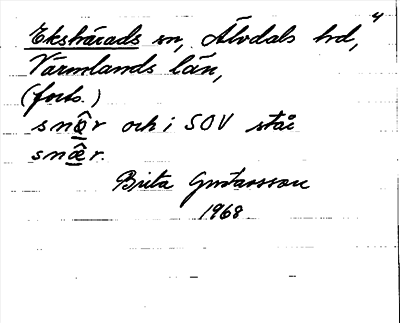 4
Ekshärads sn, Älvdals hd,
Värmlands län,
(forts.)
snø̂r och i SOV stå
snæ̂r.
Brita Gustavsson
1968